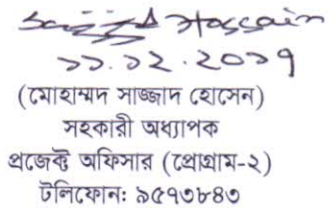 Sajjad Hossain
১১.১২.২০১৭
(মোহাম্মদ সাজ্জাদ হোসেন)
সহকারী অধ্যাপক
প্রজেক্ট অফিসার (প্রোগ্রাম-২)
টলিফোন: ৯৫৭৩৮৪৩